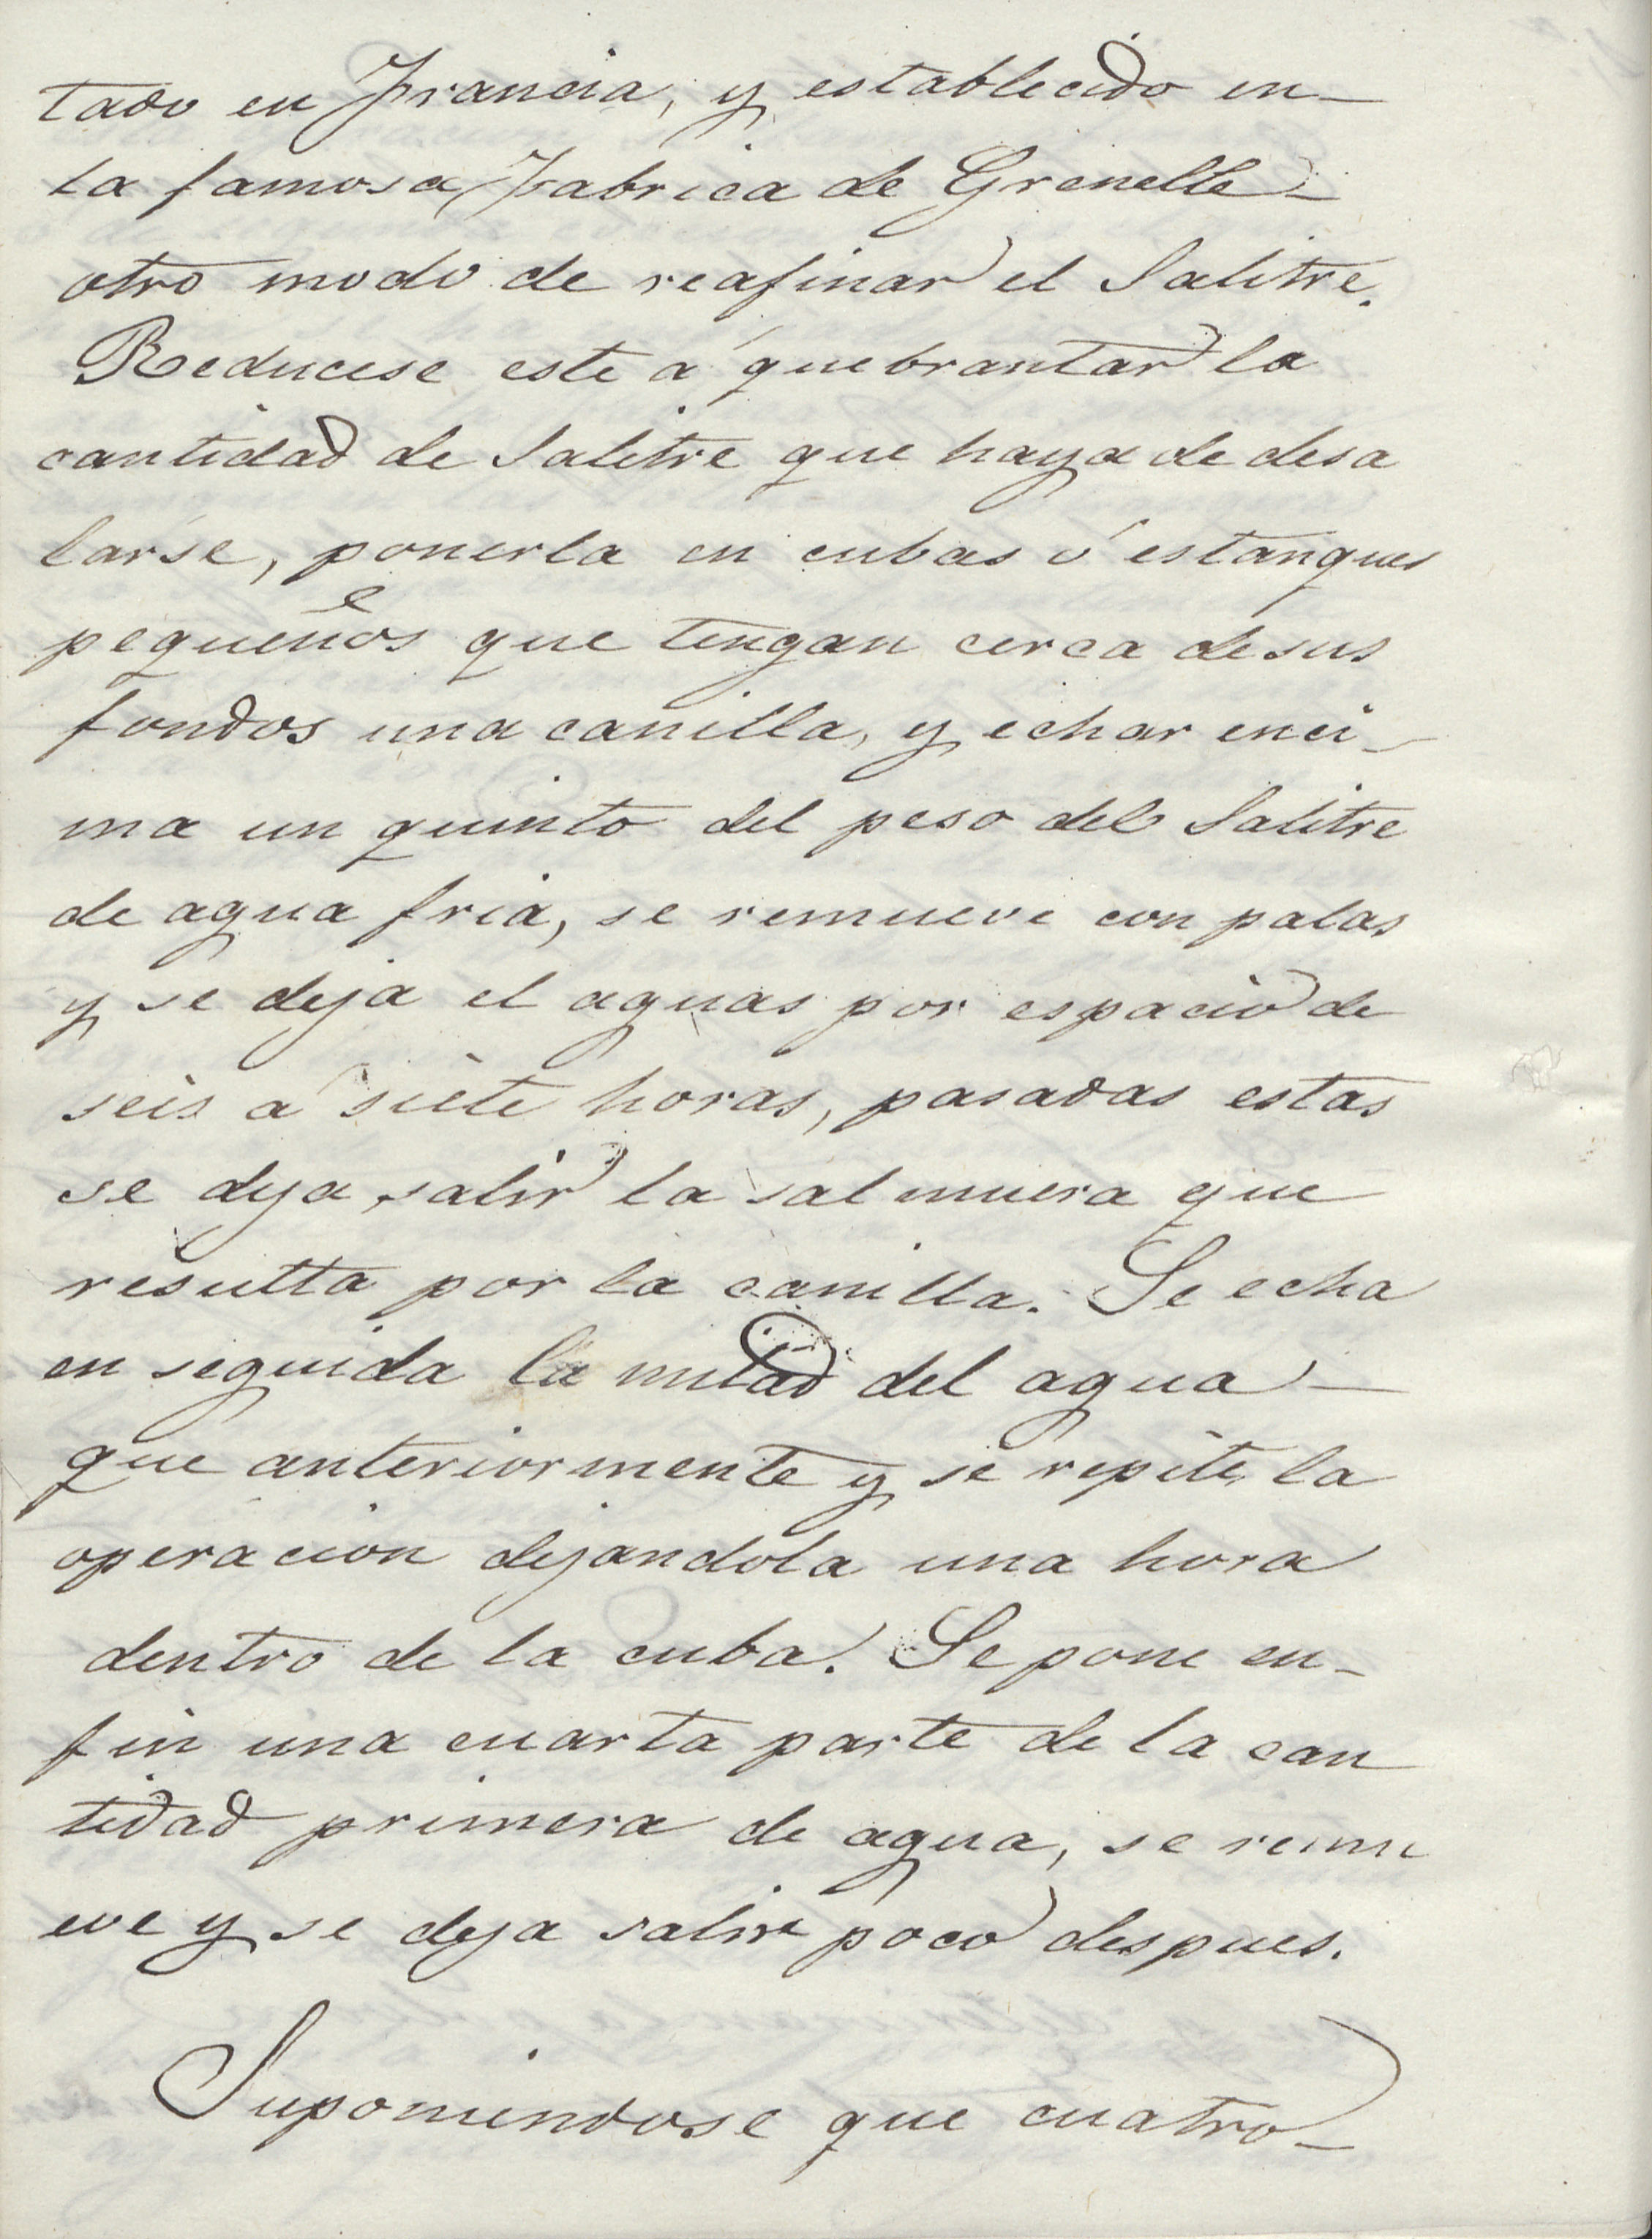 tado en Francia, y establecido en-
la famosa Fabrica de Grenelle-
otro modo de reafinar el Salitre.
Reducese este á quebrantar la
cantidad de Salitre que haya de desa
larse, ponerla en cubas ó estanques
pequeños que tengan cerca de sus
fondos una canilla, y echar enci-
ma un quinto del peso del Salitre
de agua fria, se remueve con palas
y se deja el aguas por espacio de
seis á siete horas, pasadas estas
se deja salir la salmuera que
resulta por la canilla. Se echa
en seguida la mitad del agua-
que anteriormente y se repite la
operacion dejandola una hora
dentro de la cuba. Se pone en-
fin una cuarta parte de la can
tidad primera de agua, se remu
eve y se deja salir poco despues.
Suponiendose que cuatro-